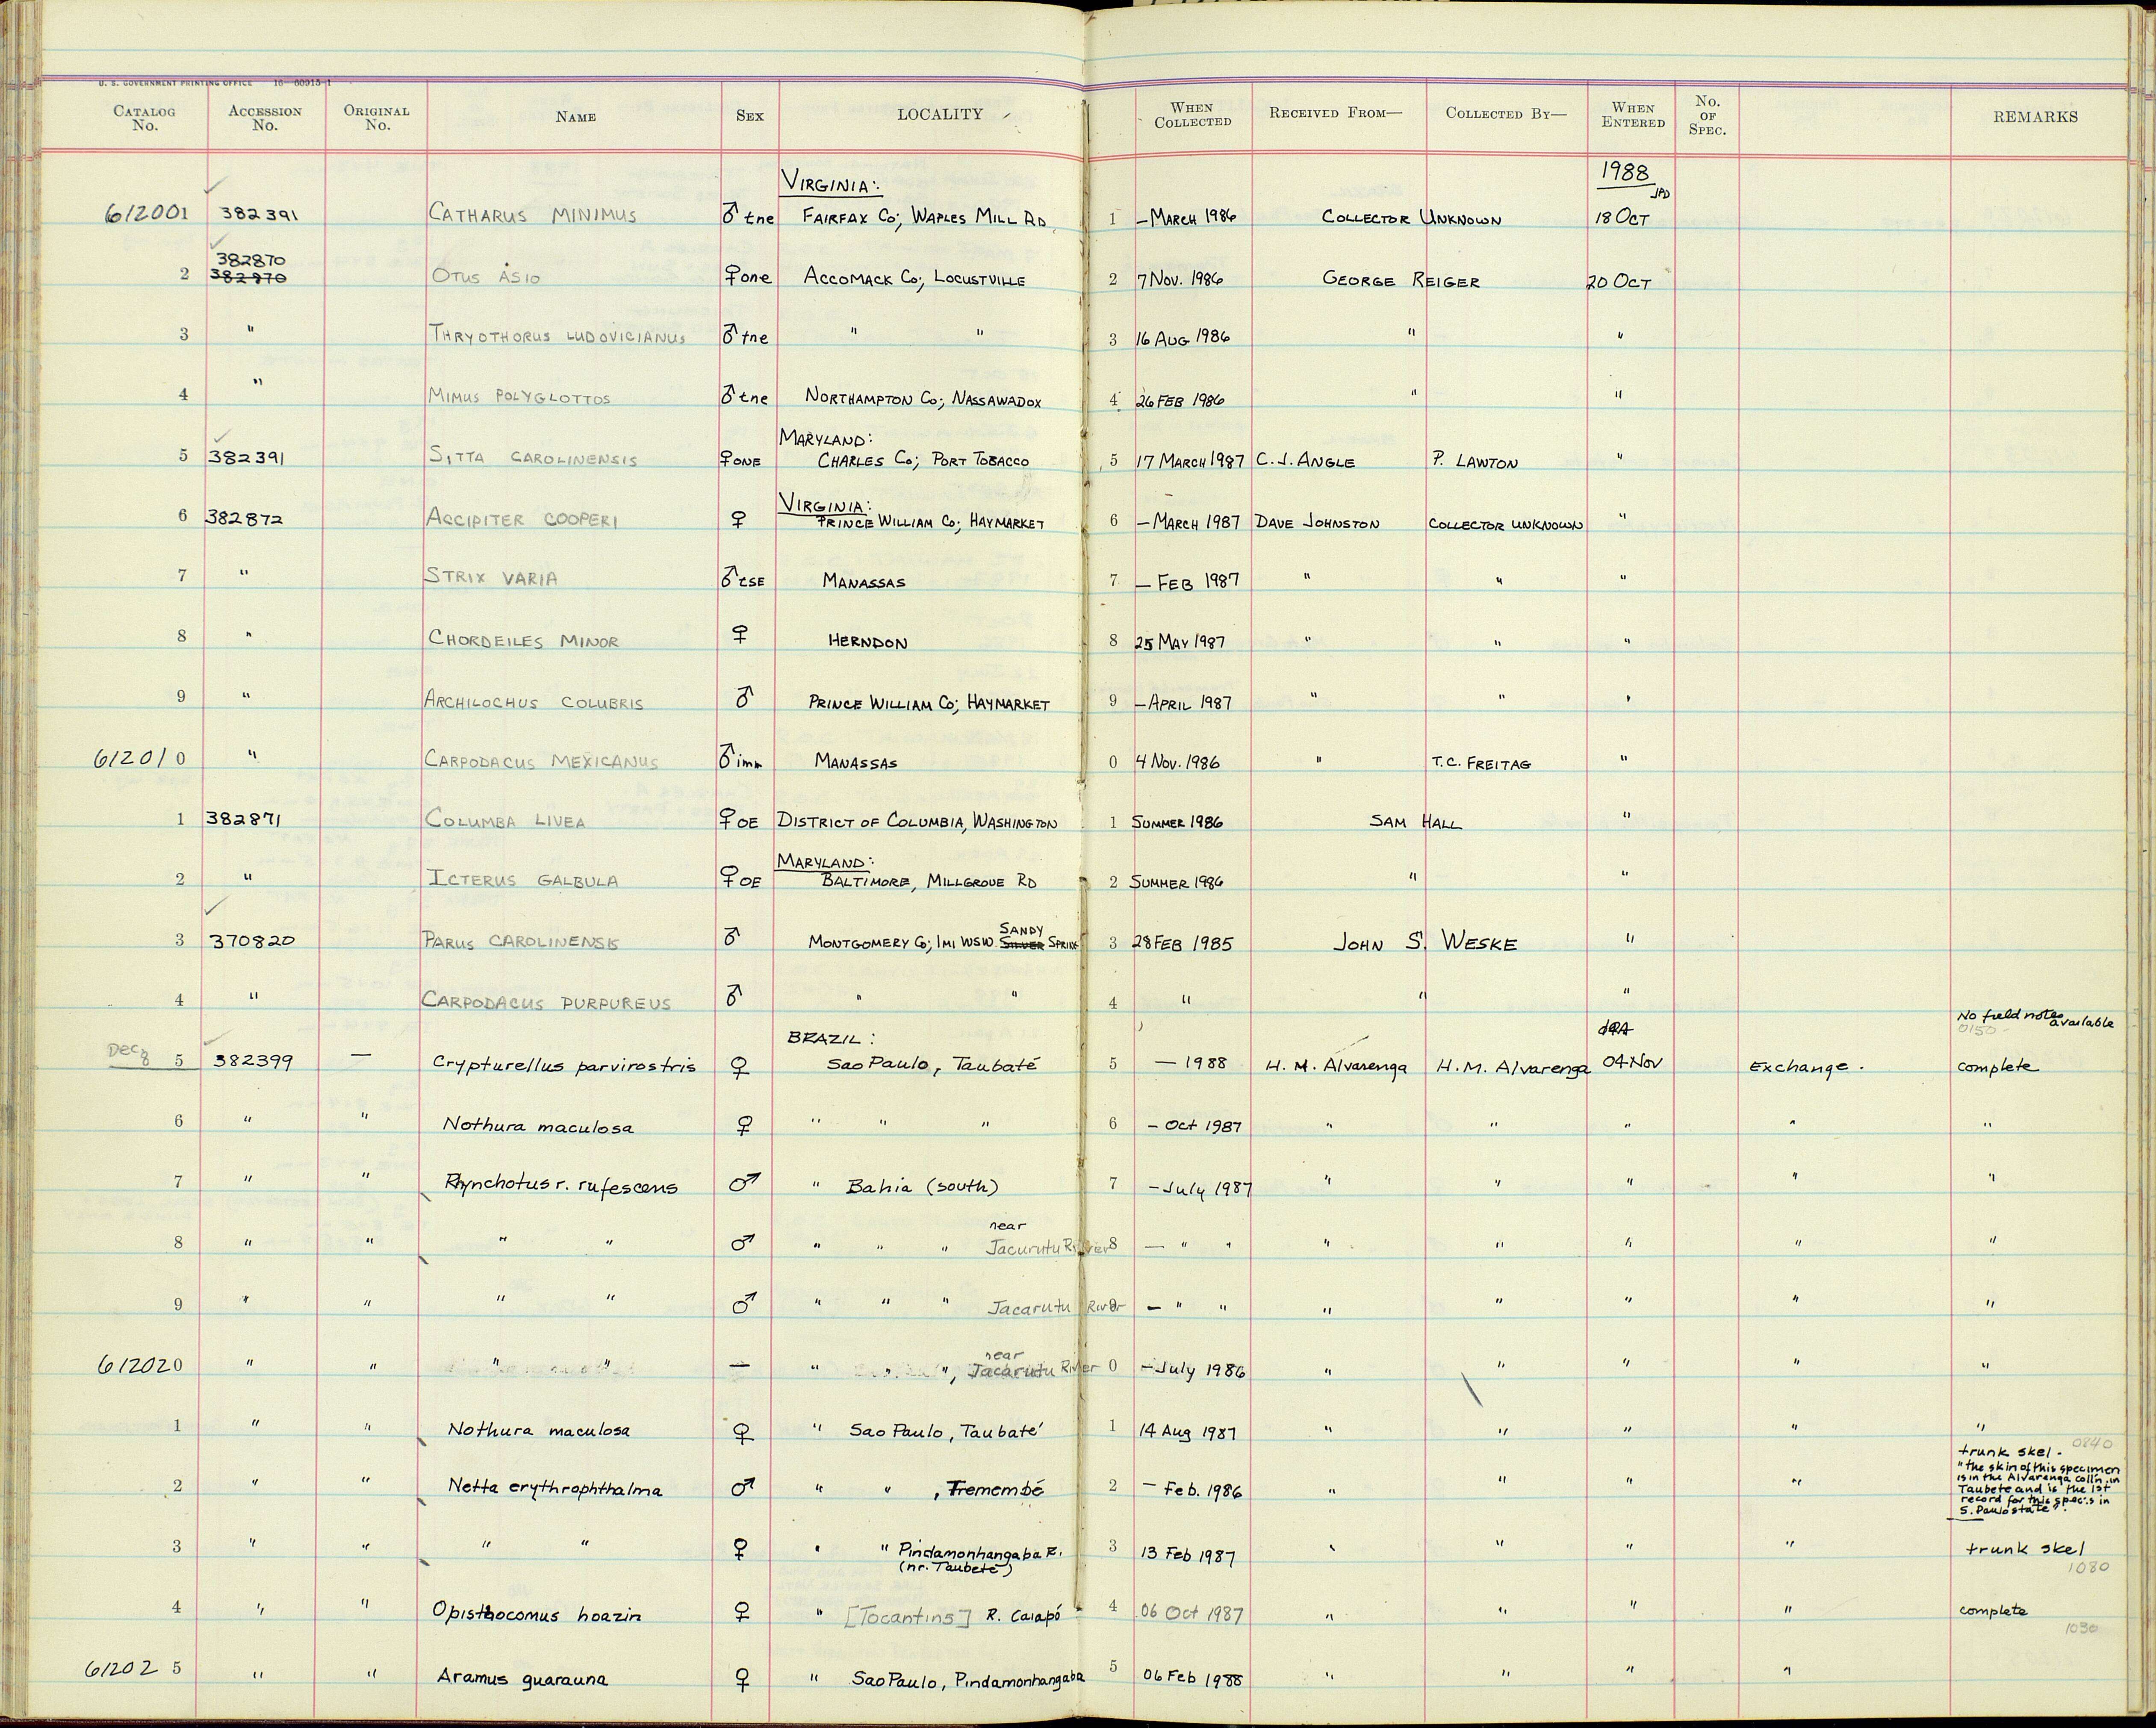 U. S. GOVERNMENT PRINTING OFFICE 16—60915-1
CATALOG No. ACCESSION No. ORIGINAL No. NAME SEX LOCALITY WHEN COLLECTED RECEIVED FROM— COLLECTED BY— WHEN ENTERED No. OF SPEC. REMARKS
VIRGINIA: 1988
612001 382391 CATHARUS MINIMUS ♂ tne FAIRFAX CO; WAPLES MILL RD. 1 — MARCH 1986 COLLECTOR UNKNOWN 18 OCT
382870
2 382970 OTUS ASIO ♀ one ACCOMACK CO; LOCUSTVILLE 2 7 NOV. 1986 GEORGE REIGER 20 OCT
3 " THRYOTHORUS LUDOVICIANUS ♂ tne " " 3 16 AUG 1986 " "
4 " MIMUS POLYGLOTTOS ♂ tne NORTHAMPTON CO; NASSAWADOX 4 26 FEB 1986 " "
MARYLAND:
5 382391 SITTA CAROLINENSIS ♀ ONE CHARLES CO; PORT TOBACCO 5 17 MARCH 1987 C. J. ANGLE P. LAWTON "
VIRGINIA:
6 382872 ACCIPITER COOPERI ♀ PRINCE WILLIAM CO; HAYMARKET 6 — MARCH 1987 DAVE JOHNSTON COLLECTOR UNKNOWN "
7 " STRIX VARIA ♂ tSE MANASSAS 7 — FEB 1987 " " "
8 " CHORDEILES MINOR ♀ HERNDON 8 25 MAY 1987 " " "
9 " ARCHILOCHUS COLUBRIS ♂ PRINCE WILLIAM CO; HAYMARKET 9 — APRIL 1987 " " "
612010 " CARPODACUS MEXICANUS ♂ imm MANASSAS 0 4 NOV. 1986 " T.C. FREITAG "
1 382871 COLUMBA LIVEA ♀ OE DISTRICT OF COLUMBIA, WASHINGTON 1 SUMMER 1986 SAM HALL "
MARYLAND:
2 " ICTERUS GALBULA ♀ OE BALTIMORE, MILLGROVE RD 2 SUMMER 1986 " "
SANDY
3 370820 PARUS CAROLINENSIS ♂ MONTGOMERY CO; 1 MI WSW SILVER SPRING 3 28 FEB 1985 JOHN S. WESKE "
4 " CARPODACUS PURPUREUS ♂ " " 4 " " "
BRAZIL: No field notes available
0150
Dec 8 5 382399 — Crypturellus parvirostris ♀ Sao Paulo, Taubaté 5 — 1988 H. M. Alvarenga H. M. Alvarenga 04 Nov Exchange. complete
6 " " Nothura maculosa ♀ " " " 6 — Oct 1987 " " " " "
7 " " Rhynchotus r. rufescens ♂ " Bahia (south) 7 — July 1987 " " " " "
near
8 " " " " ♂ " " " Jacurutu River 8 — " " " " " " "
9 " " " " ♂ " " " Jacarutu River — " " " " " " "
near
612020 " " " " — " " ", Jacarutu River 0 — July 1986 " " " " "
1 " " Nothura maculosa ♀ " Sao Paulo, Taubaté 1 14 Aug 1987 " " " " "
0840
2 " " Netta erythrophthalma ♂ " " , Tremembé 2 — Feb. 1986 " " " " trunk skel.
"the skin of this specimen
is in the Alvarenga coll'n in
Taubete and is the 1st
record for this spec's in
S. Paulo state".
3 " " " " ♀ " " Pindamonhangaba R. 3 13 Feb 1987 " " " " trunk skel
(nr. Taubete)
1080
4 " " Opisthocomus hoazin ♀ " [Tocantins] R. Caiapó 4 06 Oct 1987 " " " " complete
1030
612025 " " Aramus guarauna ♀ " Sao Paulo, Pindamonhangaba 5 06 Feb 1988 " " " "